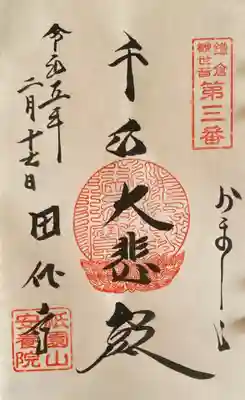 鎌倉
観世音
第三番
かまくら
千手大悲殿
令和五年
二月十七日
田代寺
祇園山
安養院